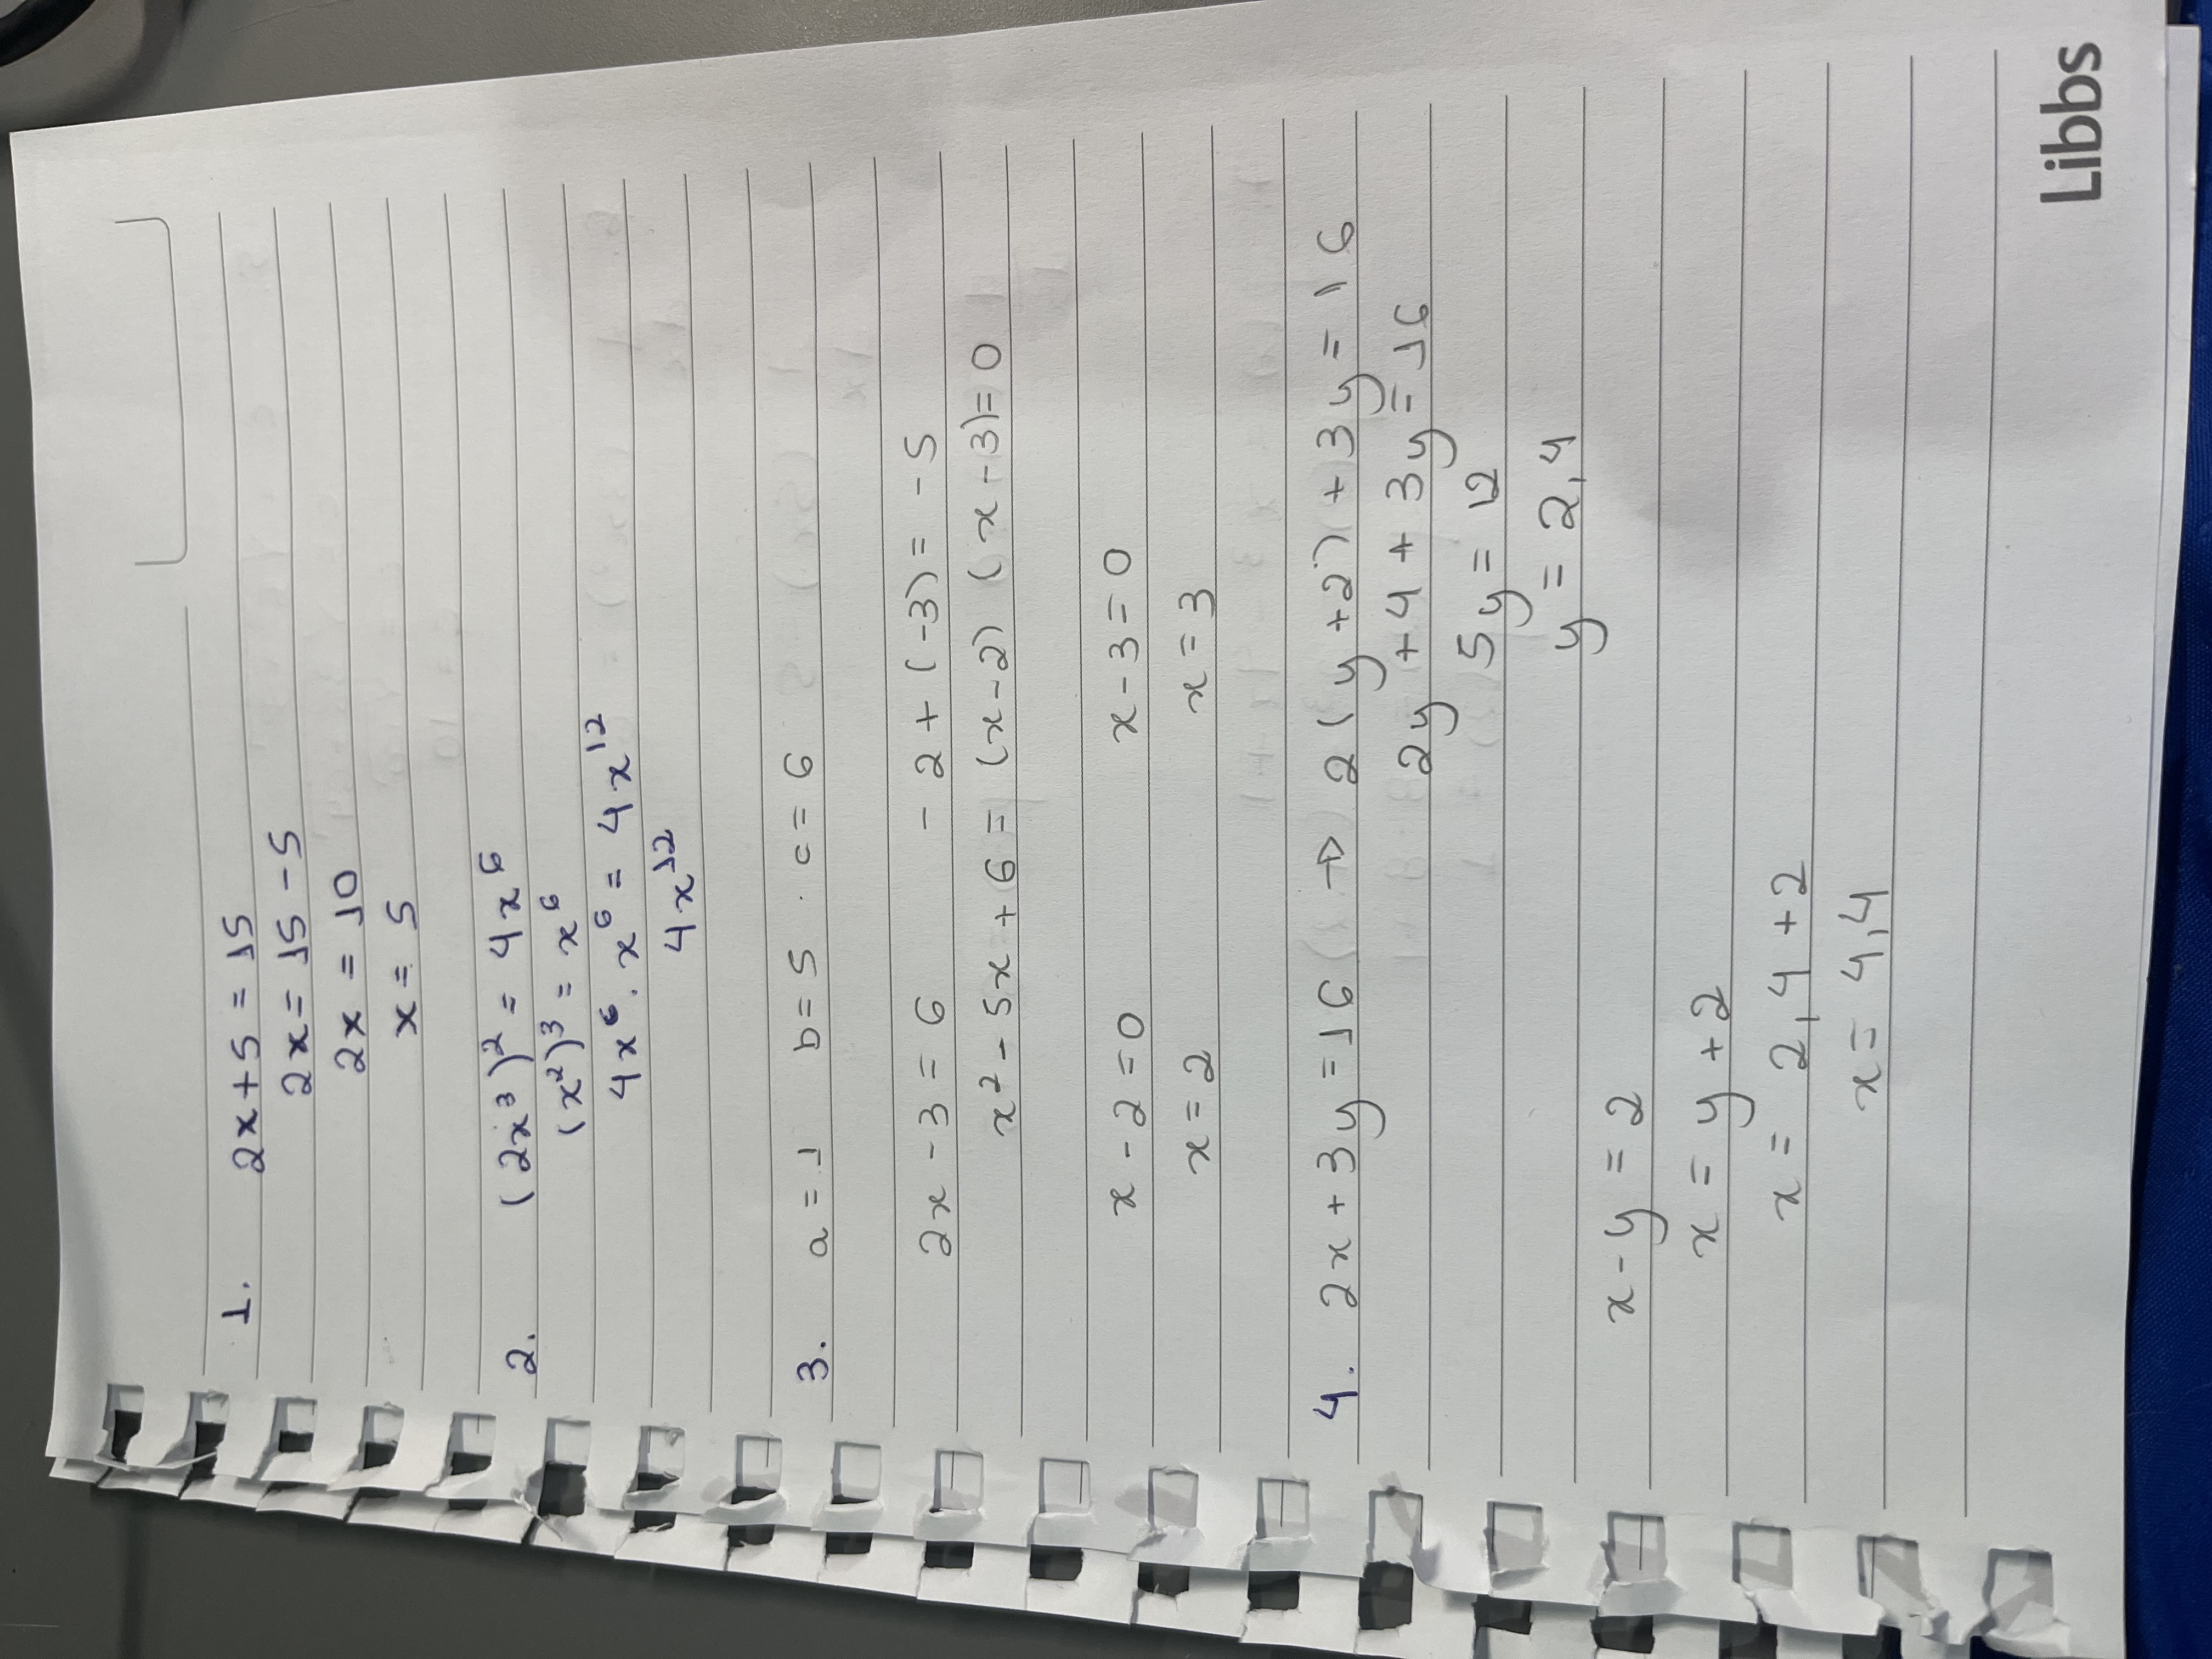 1. 2x + 5 = 15
2x = 15 - 5
2x = 10
x = 5
2. (2x³)² = 4x⁶
(x²)³ = x⁶
4x⁶ . x⁶ = 4x¹²
4x¹²
3. a = 1 b = 5 . c = 6
2x - 3 = 6 - 2 + (-3) = - 5
x² - 5x + 6 = (x - 2) (x - 3) = 0
x - 2 = 0 x - 3 = 0
x = 2 x = 3
4. 2x + 3y = 16 → 2(y + 2) + 3y = 16
2y + 4 + 3y = 16
5y = 12
y = 2,4
x - y = 2
x = y + 2
x = 2,4 + 2
x = 4,4
Libbs